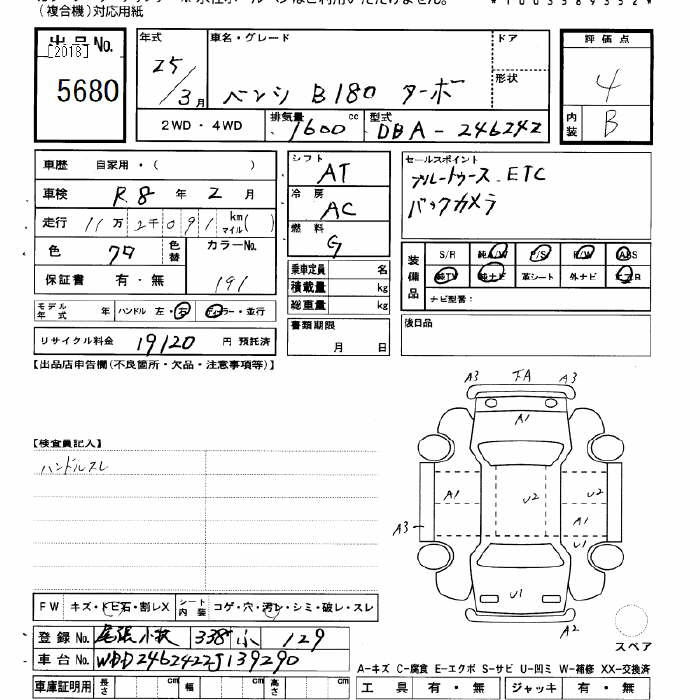 (複合機)対応用紙
出品No.
[2013]
5680
年式 車名・グレード ドア
25/3月 ベンツ B180 ターボ
形状
2WD・4WD 排気量 1600 cc 型式 DBA-246242
評価点
4
内装 B
車歴 自家用・( )
車検 R.8年2月
走行 11万2千091 km マイル( )
色 クロ 色替 カラーNo.
保証書 有・無 191
モデル年式 年 ハンドル 左・右 ディーラー・並行
リサイクル料金 19120 円 預託済
シフト AT
冷房 AC
燃料 G
乗車定員 名
積載量 kg
総重量 kg
書類期限
月 日
セールスポイント
ブルートゥース.ETC
バックカメラ
装備品 S/R 純A/W P/S P/W ABS
純TV 純ナビ 革シート 外ナビ エアB
ナビ型番:
後日品
【出品店申告欄(不良箇所・欠品・注意事項等)】
【検査員記入】
ハンドルスレ
A3 A3
A1
A1 U2 U2
A3 A1
U1
U1
A2
スペア
FW キズ・トビ石・割レX シート内装 コゲ・穴・汚レ・シミ・破レ・スレ
登録No. 尾張小牧 338 ふ 129
車台No. WDD2462422J139290
A-キズ C-腐食 E-エクボ S-サビ U-凹ミ W-補修 XX-交換済
車庫証明用 長さ cm 幅 cm 高さ cm 工具 有・無 ジャッキ 有・無